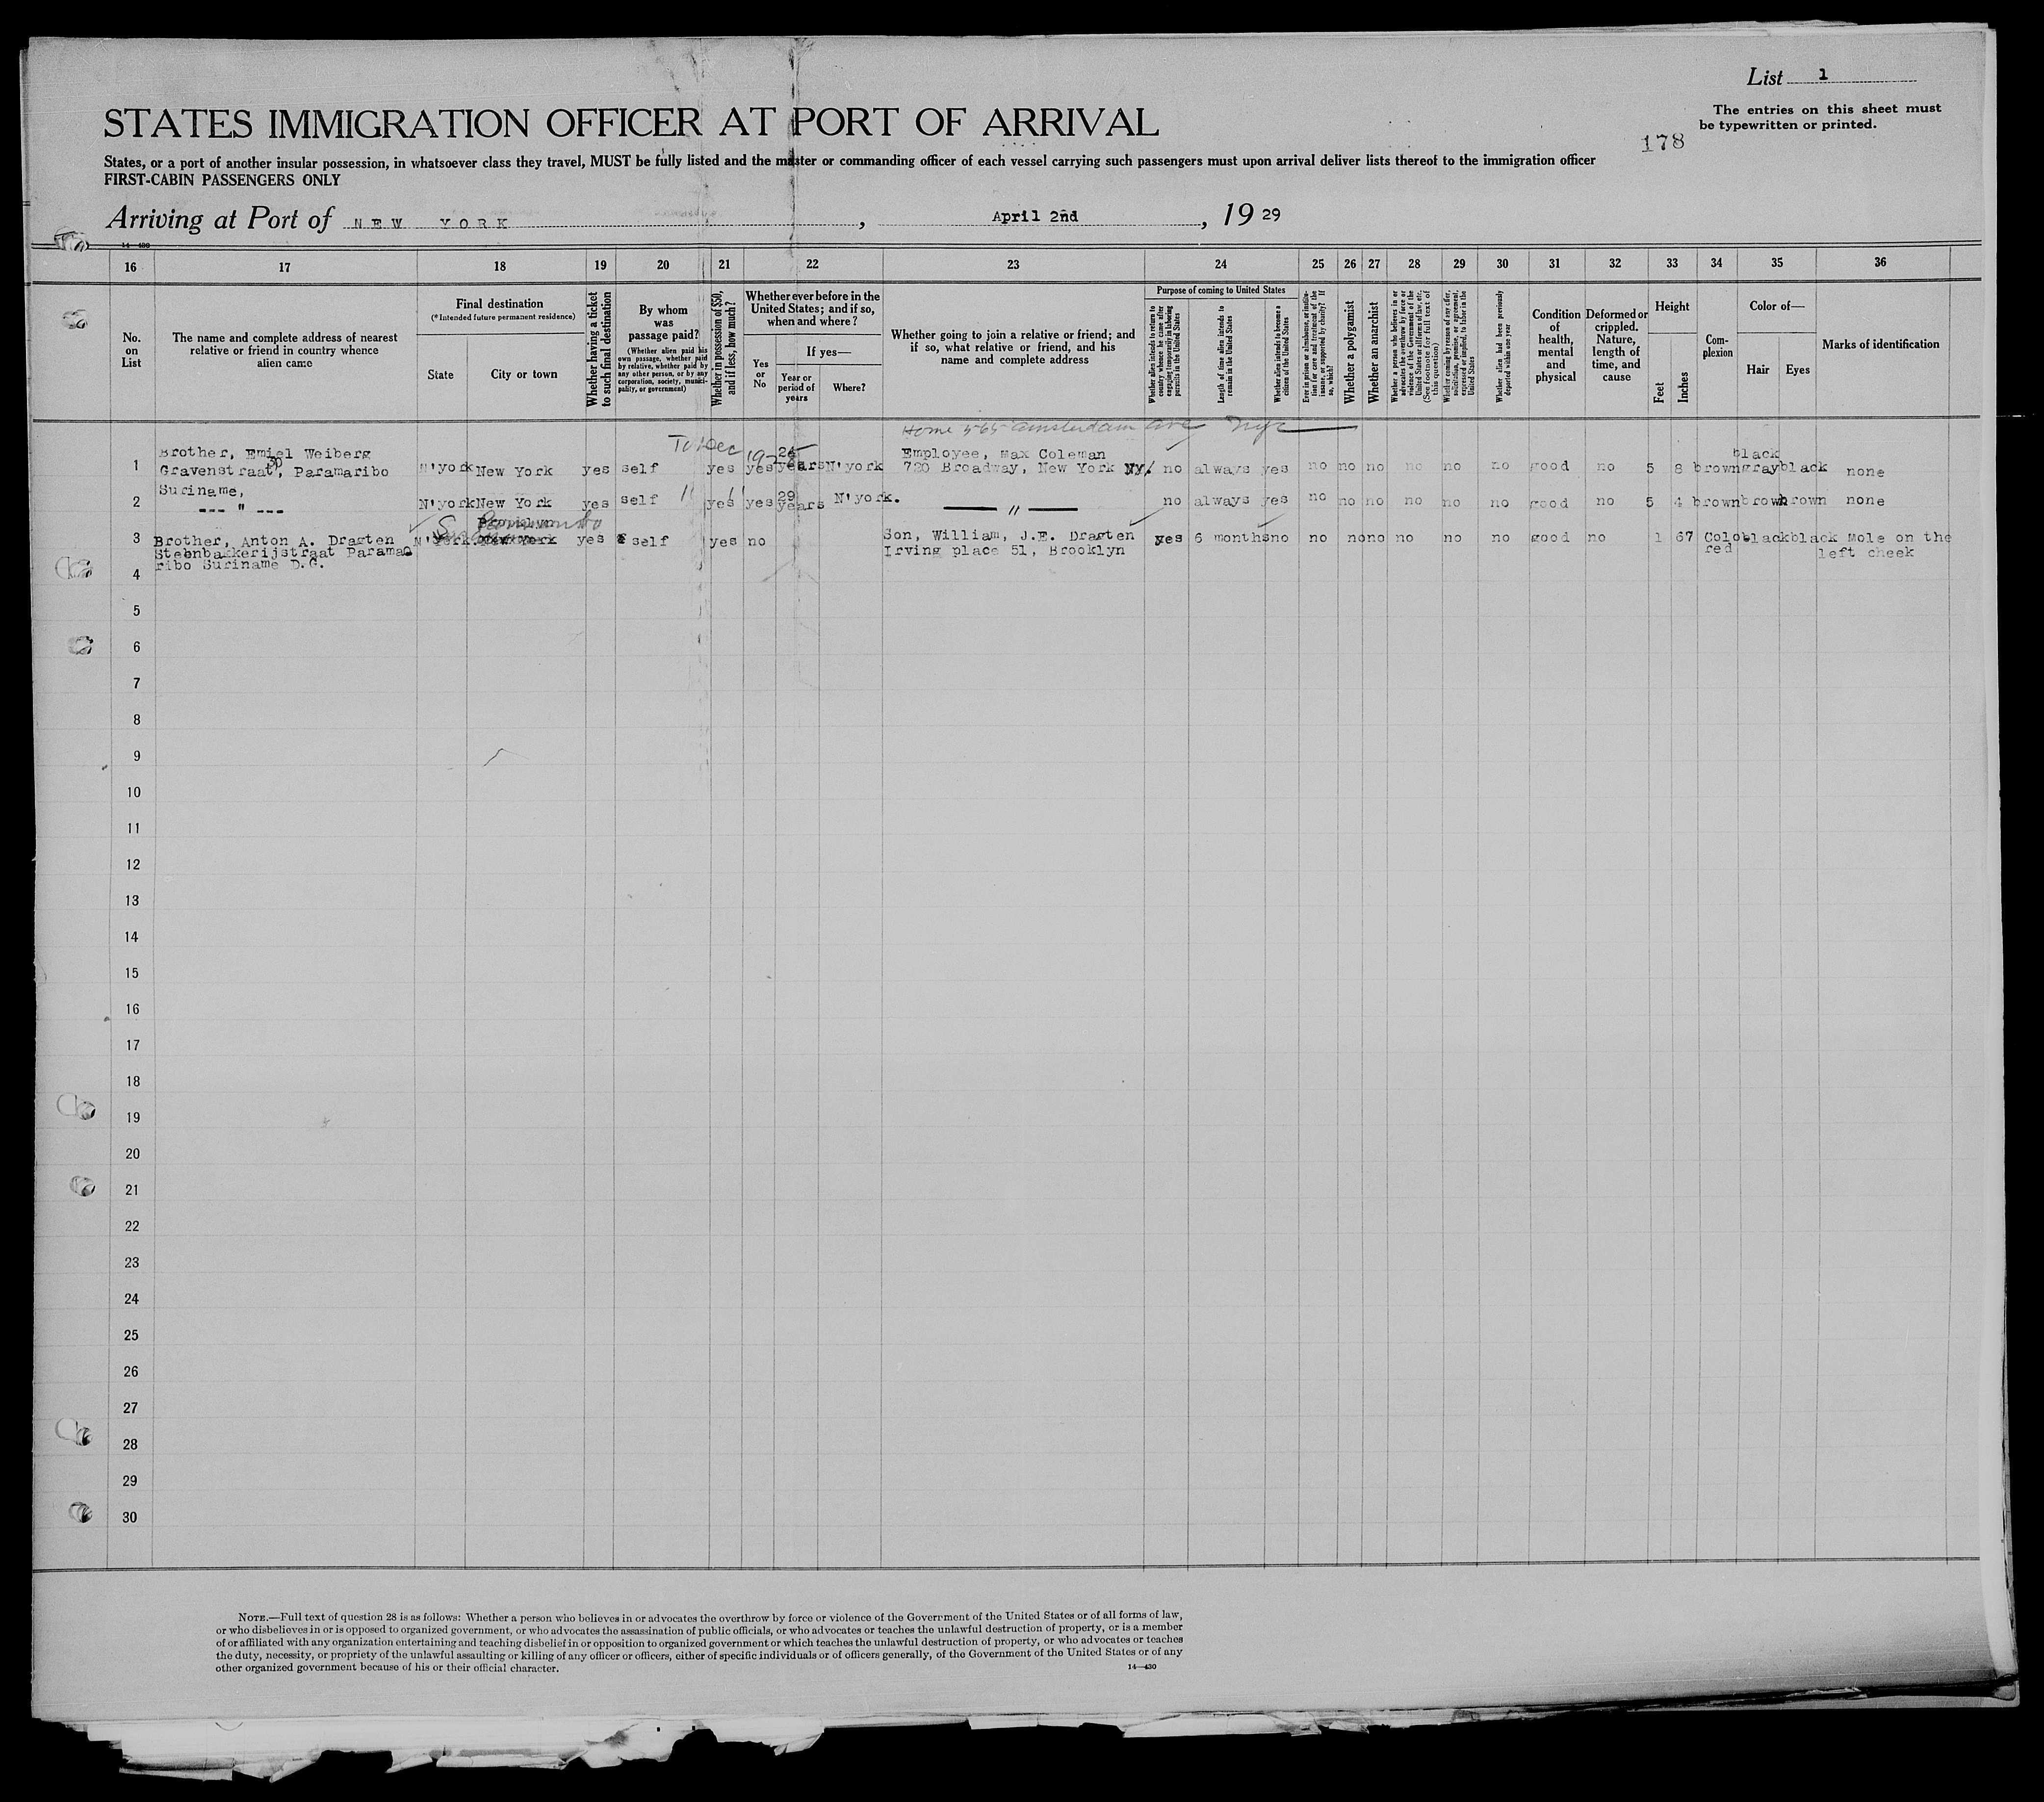 List 1
The entries on this sheet must
be typewritten or printed.
178
STATES IMMIGRATION OFFICER AT PORT OF ARRIVAL
States, or a port of another insular possession, in whatsoever class they travel, MUST be fully listed and the master or commanding officer of each vessel carrying such passengers must upon arrival deliver lists thereof to the immigration officer
FIRST-CABIN PASSENGERS ONLY
Arriving at Port of NEW YORK, April 2nd, 19 29
14—430
16 17 18 19 20 21 22 23 24 25 26 27 28 29 30 31 32 33 34 35 36
No.
on
List
The name and complete address of nearest
relative or friend in country whence
alien came
Final destination
(* Intended future permanent residence)
State
City or town
Whether having a ticket
to such final destination
By whom
was
passage paid?
(Whether alien paid his
own passage, whether paid
by relative, whether paid by
any other person, or by any
corporation, society, munici-
pality, or government)
Whether in possession of $50,
and if less, how much?
Whether ever before in the
United States; and if so,
when and where?
Yes
or
No
If yes—
Year or
period of
years
Where?
Whether going to join a relative or friend; and
if so, what relative or friend, and his
name and complete address
Purpose of coming to United States
Whether alien intends to return to
country whence he came after
engaging temporarily in laboring
pursuits in the United States
Length of time alien intends to
remain in the United States
Whether alien intends to become a
citizen of the United States
Ever in prison or almshouse, or institu-
tion for care and treatment of the
insane, or supported by charity? If
so, which?
Whether a polygamist
Whether an anarchist
Whether a person who believes in or
advocates the overthrow by force or
violence of the Government of the
United States or all forms of law, etc.
(See footnote for full text of
this question)
Whether coming by reason of any offer,
solicitation, promise, or agreement,
expressed or implied, to labor in the
United States
Whether alien had been previously
deported within one year
Condition
of
health,
mental
and
physical
Deformed or
crippled.
Nature,
length of
time, and
cause
Height
Feet
Inches
Com-
plexion
Color of—
Hair
Eyes
Marks of identification
Home 565 Amsterdam Ave NYC
To Dec 1928
1 Brother, Emiel Weiberg
Gravenstraat, Paramaribo
Suriname,
N'york New York yes self yes yes years N'york
Employee, Max Coleman
720 Broadway, New York NY. no always yes no no no no no no good no 5 8 brown black
gray black none
2 --- " --- N'york New York yes self " yes " yes 29
years N'york. — " — no always yes no no no no no no good no 5 4 brown brown brown none
3 Brother, Anton A. Dragten
Steenbakkerijstraat Parama
ribo Suriname D.G.
N'york. Brooklyn
New York Paramaribo yes self yes no
Son, William, J.E. Dragten
Irving place 51, Brooklyn
yes 6 months no no no no no no no good no 1 67 Colo
red black black Mole on the
left cheek
4
5
6
7
8
9
10
11
12
13
14
15
16
17
18
19
20
21
22
23
24
25
26
27
28
29
30
NOTE.—Full text of question 28 is as follows: Whether a person who believes in or advocates the overthrow by force or violence of the Government of the United States or of all forms of law,
or who disbelieves in or is opposed to organized government, or who advocates the assassination of public officials, or who advocates or teaches the unlawful destruction of property, or is a member
of or affiliated with any organization entertaining and teaching disbelief in or opposition to organized government or which teaches the unlawful destruction of property, or who advocates or teaches
the duty, necessity, or propriety of the unlawful assaulting or killing of any officer or officers, either of specific individuals or of officers generally, of the Government of the United States or of any
other organized government because of his or their official character.
14—430